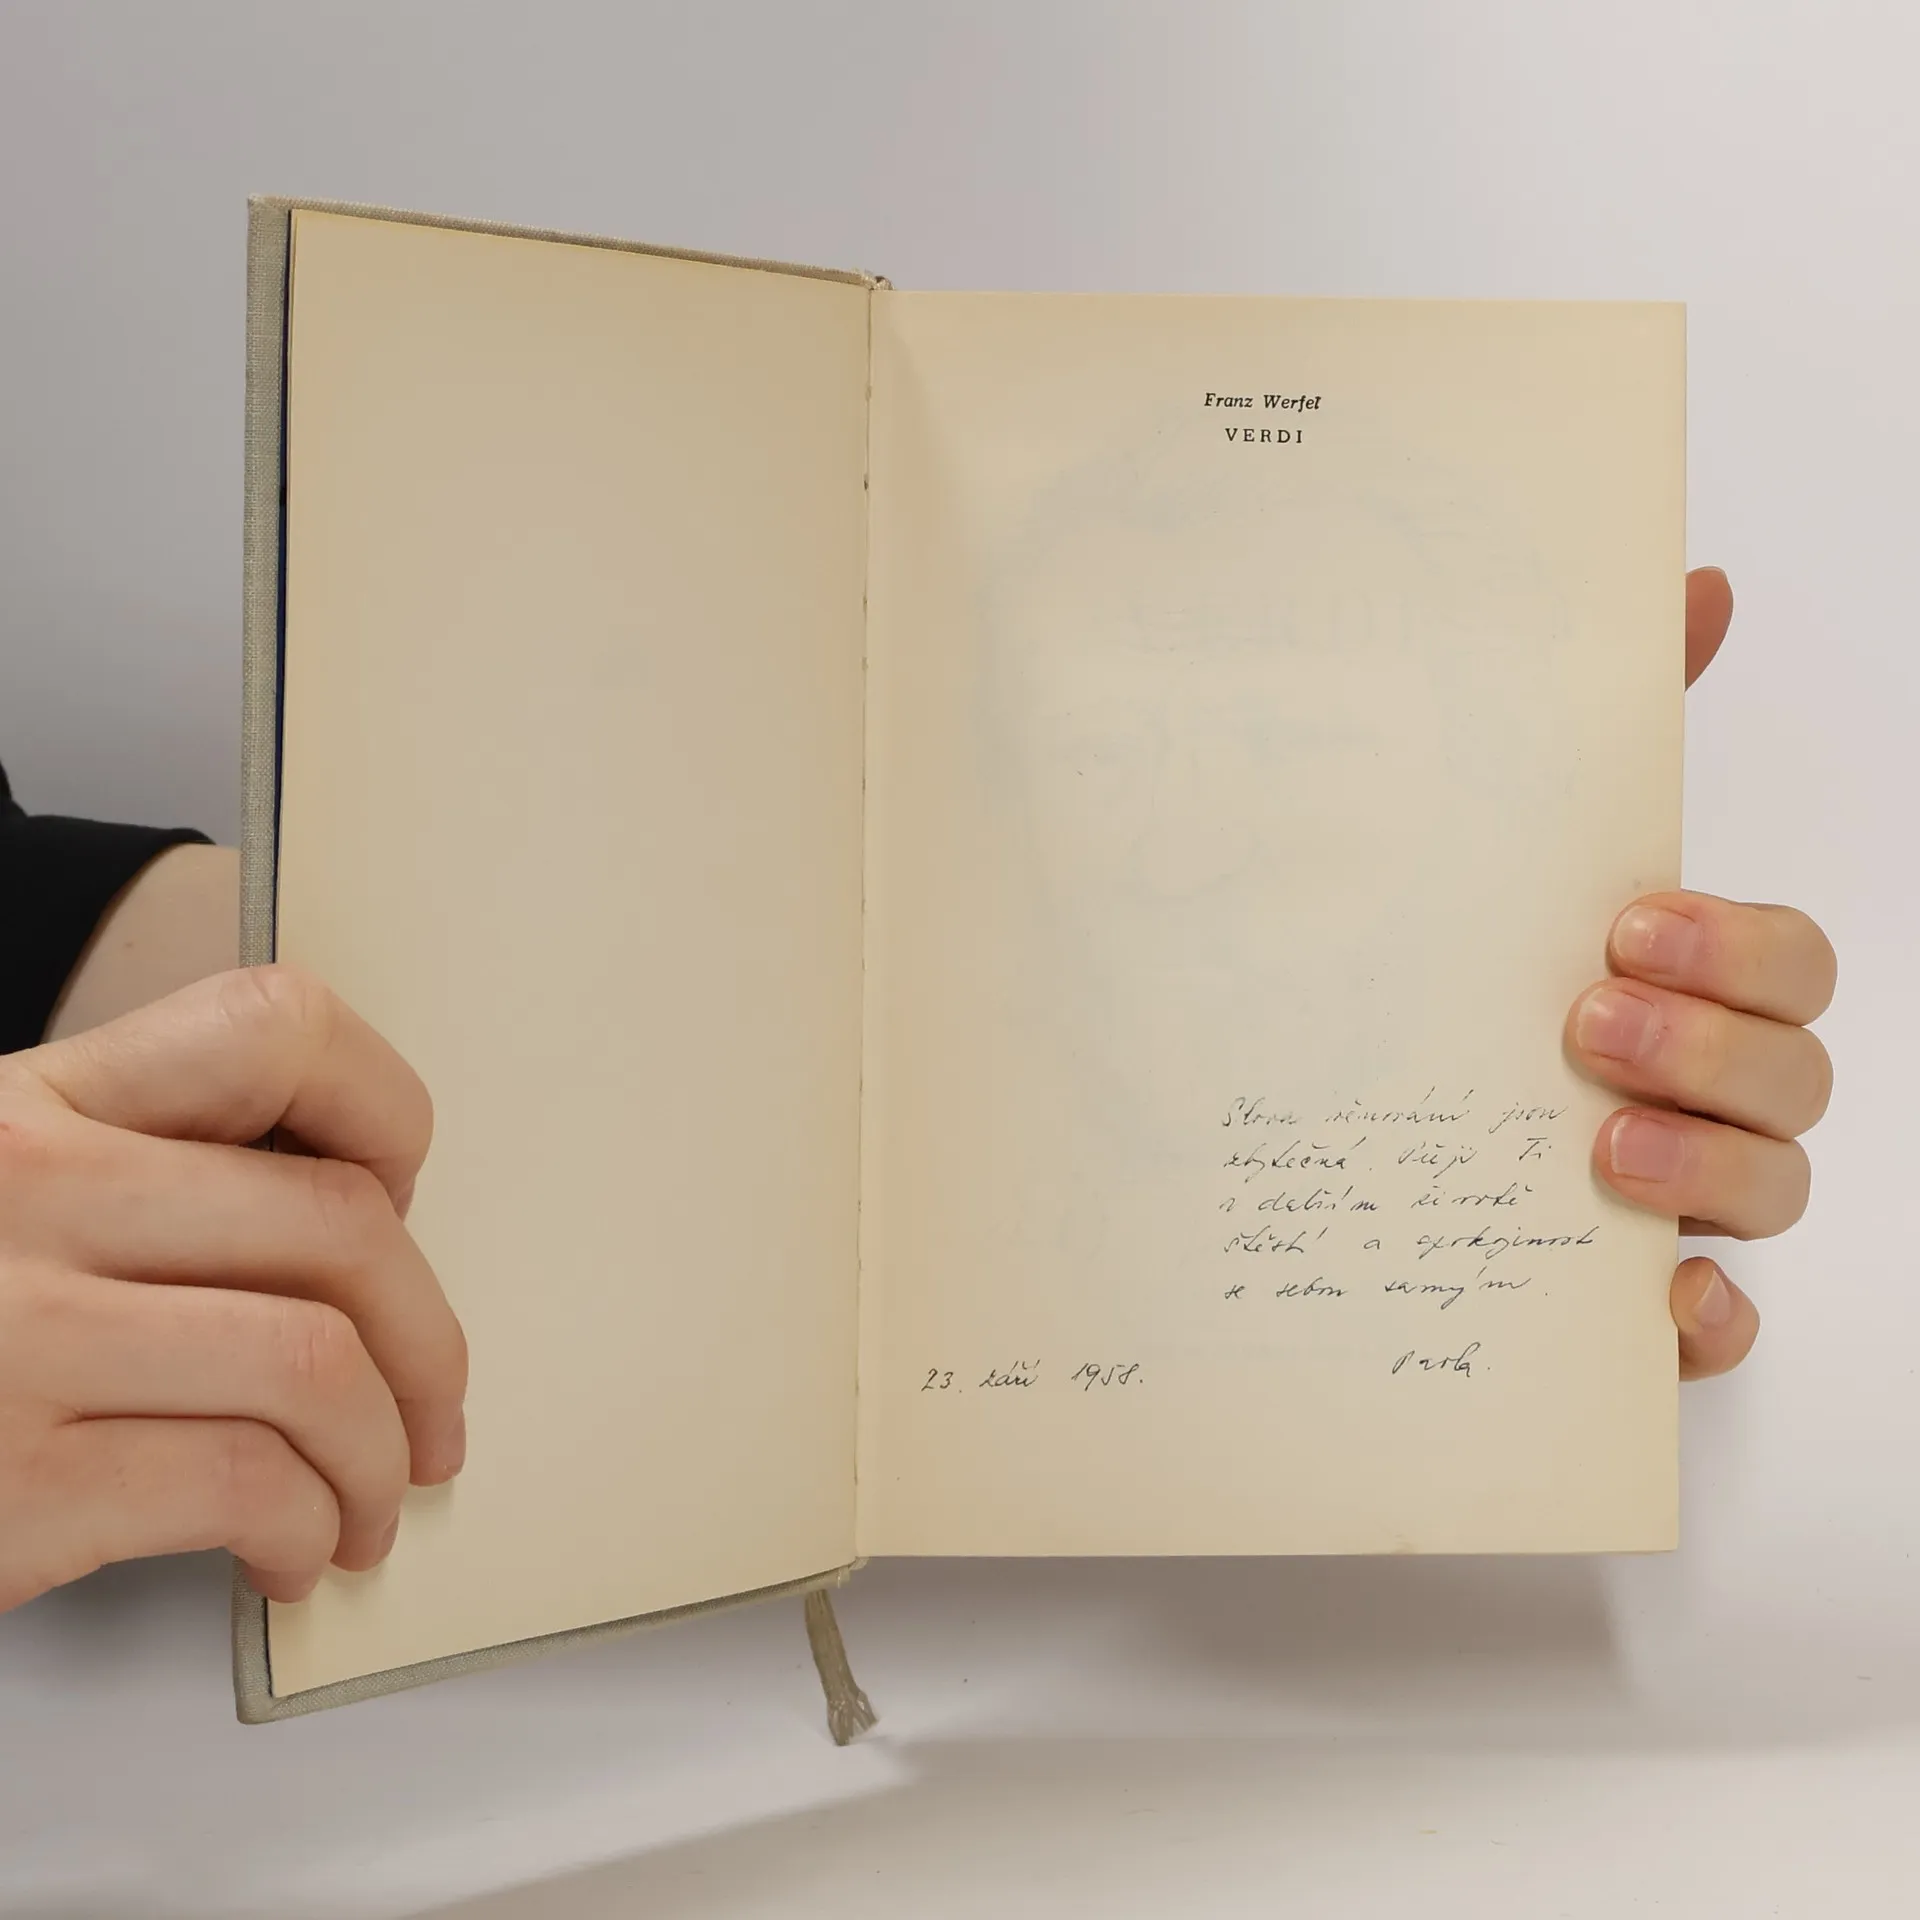 Franz Werfel
VERDI
Slova věnování jsou
zbytečná. Přeji Ti
v dalším životě
štěstí a spokojenost
se sebou samým.
Pavla.
23. září 1958.